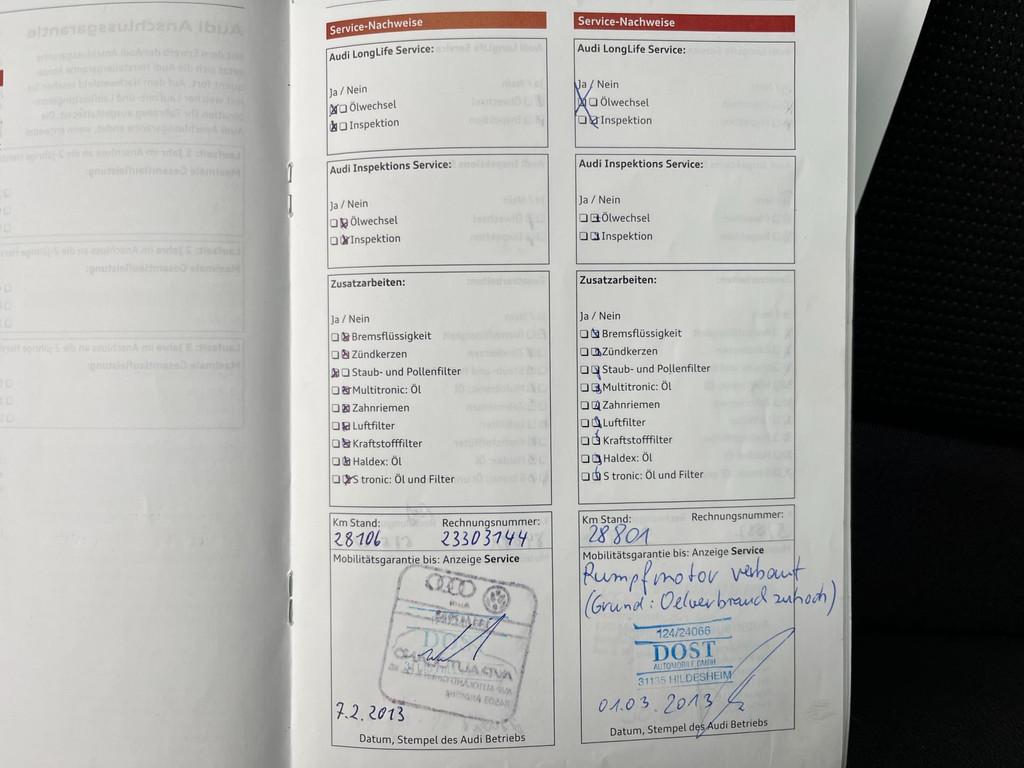 Service-Nachweise
Audi LongLife Service:
Ja / Nein
Ölwechsel
Inspektion
Audi Inspektions Service:
Ja / Nein
Ölwechsel
Inspektion
Zusatzarbeiten:
Ja / Nein
Bremsflüssigkeit
Zündkerzen
Staub- und Pollenfilter
Multitronic: Öl
Zahnriemen
Luftfilter
Kraftstofffilter
Haldex: Öl
S tronic: Öl und Filter
Km Stand: Rechnungsnummer:
28106 23303144
Mobilitätsgarantie bis: Anzeige Service
7.2.2013
Datum, Stempel des Audi Betriebs
Service-Nachweise
Audi LongLife Service:
Ja / Nein
Ölwechsel
Inspektion
Audi Inspektions Service:
Ja / Nein
Ölwechsel
Inspektion
Zusatzarbeiten:
Ja / Nein
Bremsflüssigkeit
Zündkerzen
Staub- und Pollenfilter
Multitronic: Öl
Zahnriemen
Luftfilter
Kraftstofffilter
Haldex: Öl
S tronic: Öl und Filter
Km Stand: Rechnungsnummer:
28801
Mobilitätsgarantie bis: Anzeige Service
Rumpfmotor verbaut
(Grund: Oelverbrauch zu hoch)
124/24066
DOST
AUTOMOBILE GMBH
31135 HILDESHEIM
01.03.2013
Datum, Stempel des Audi Betriebs